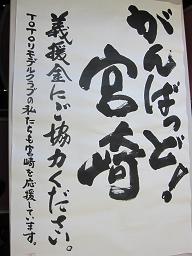 がんばっど!
宮崎
義援金にご協力ください。
TOTOリモデルクラブの私たちも宮崎を応援しています。